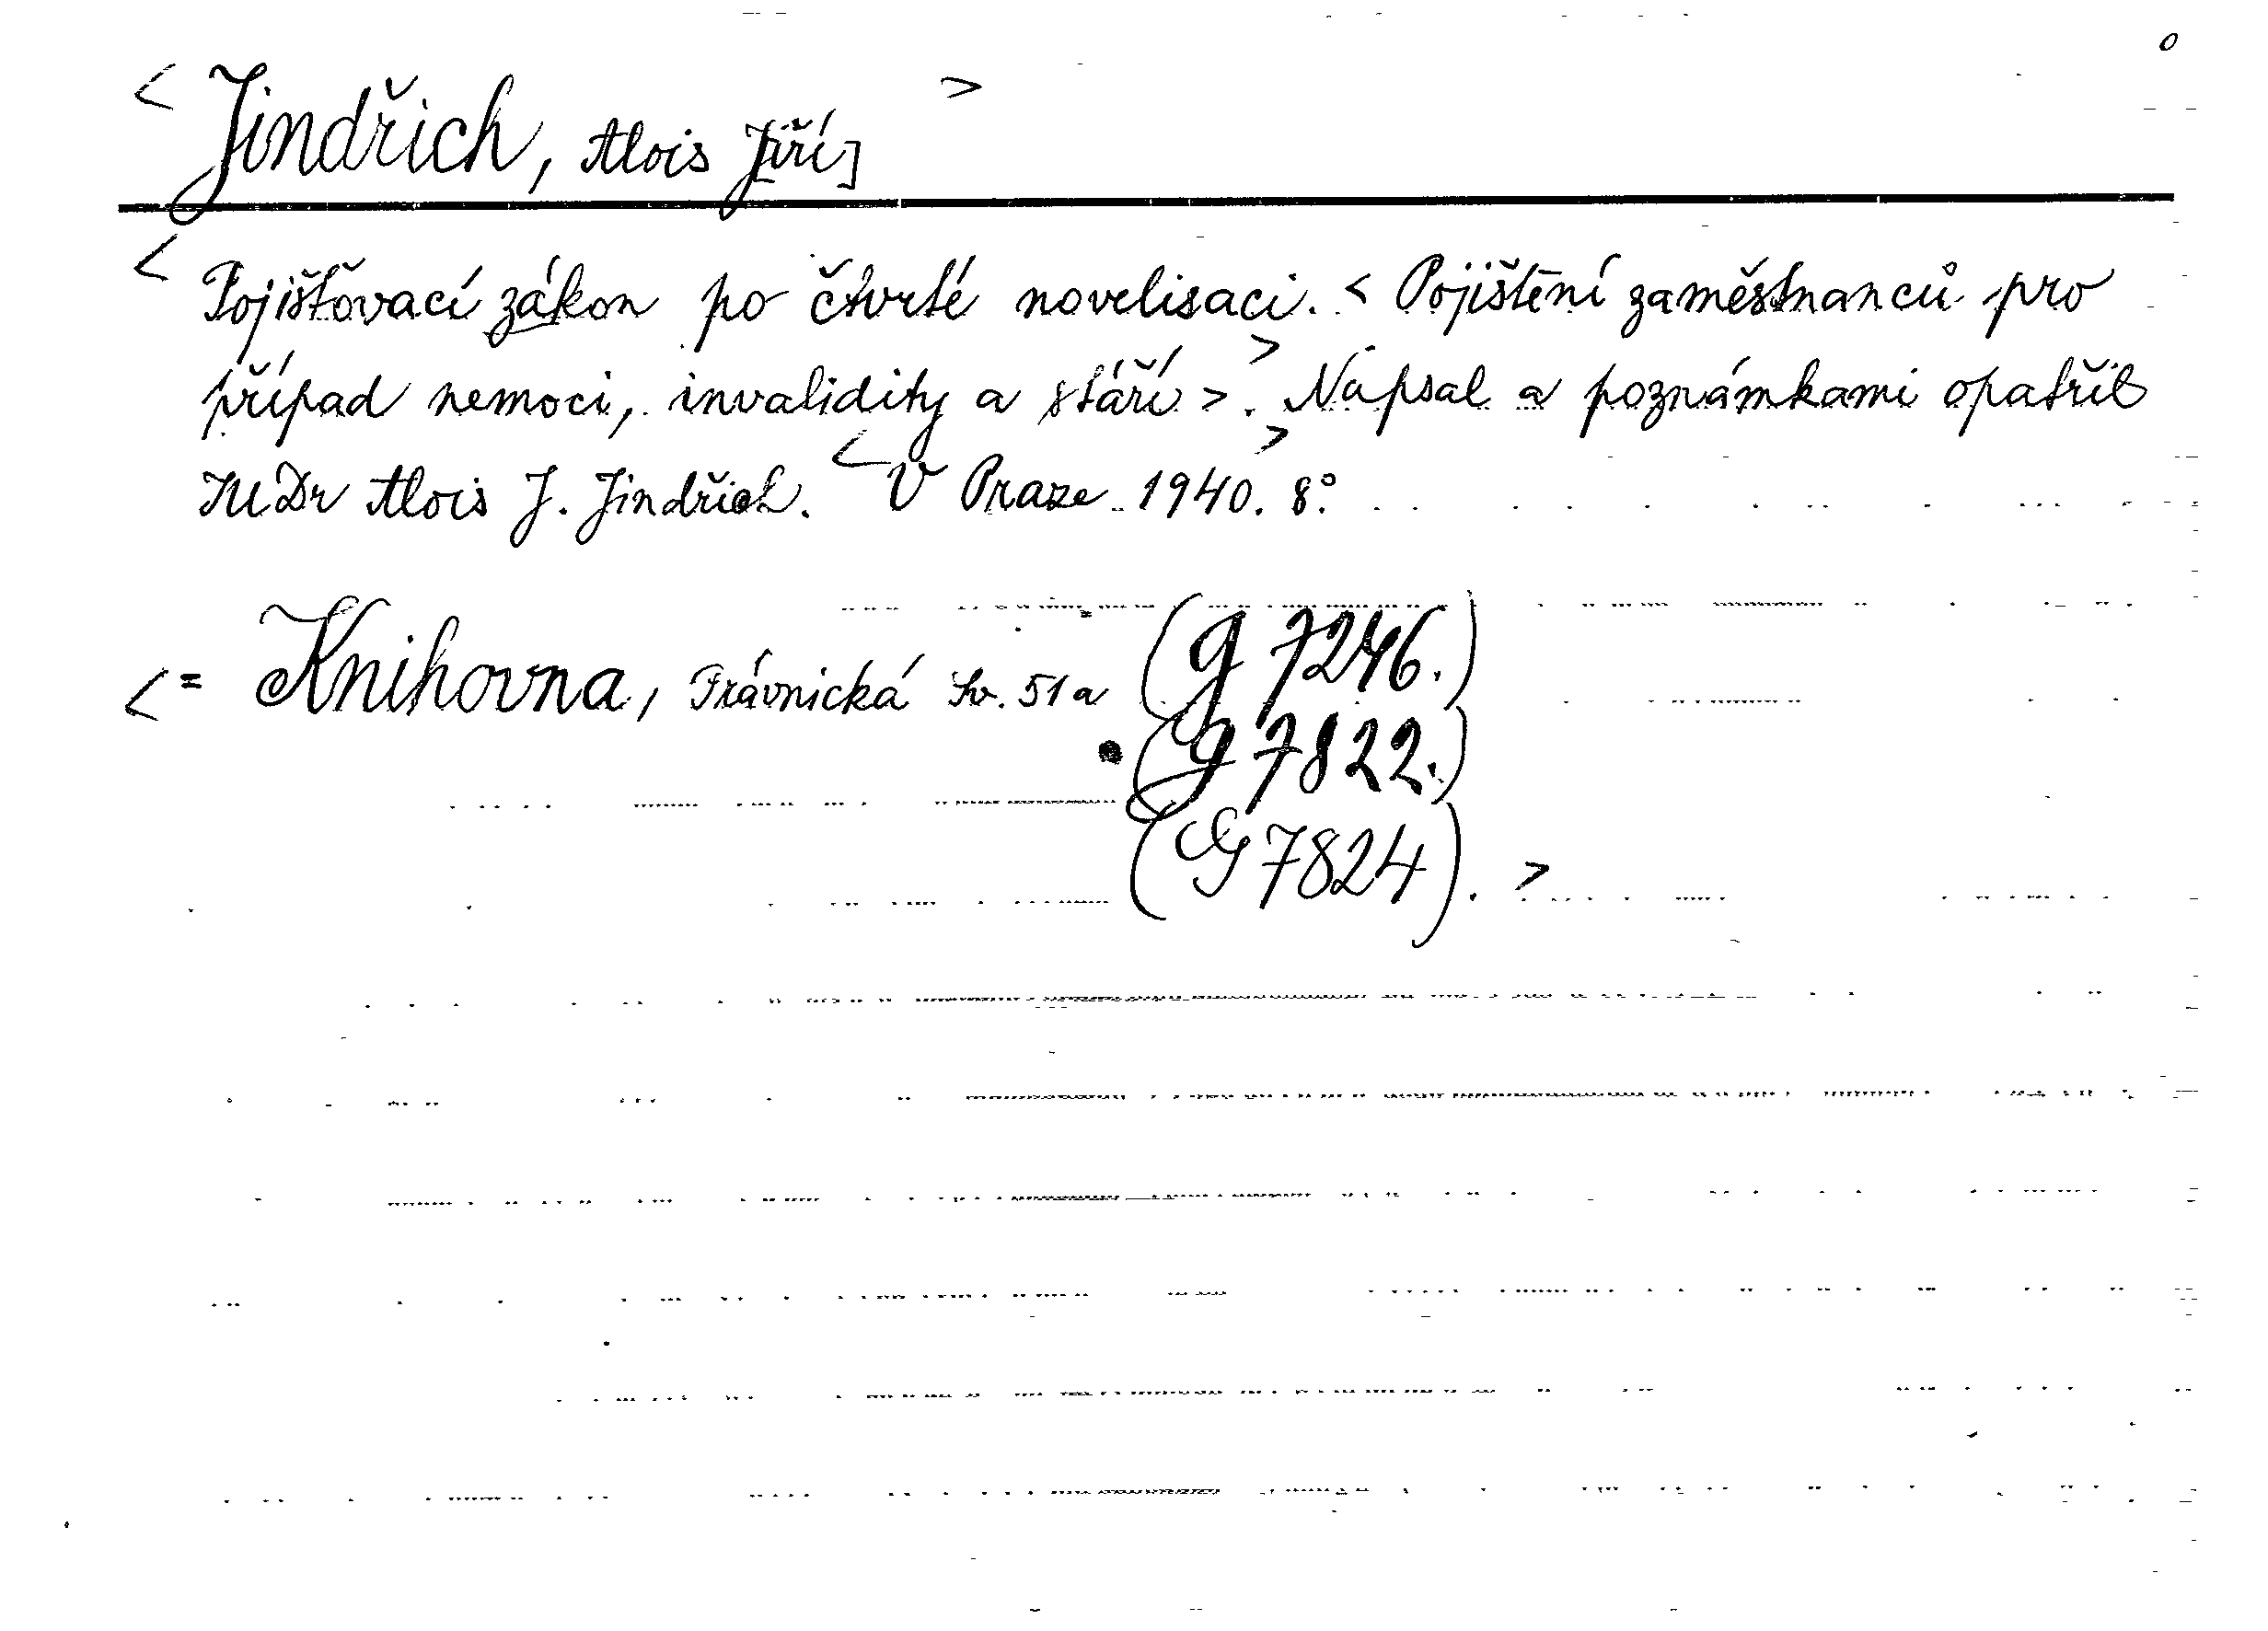 < Jindřich, Alois J[iří] >
< Pojišťovací zákon po čtvrté novelisaci. < Pojištění zaměstnanců pro
případ nemoci, invalidity a stáří >. > Napsal a poznámkami opatřil
JUDr Alois J. Jindřich. < V Praze 1940. > 8°.
< = Knihovna, Právnická Sv. 51a (G 7246.)
(G 7822.)
(G 7824). >